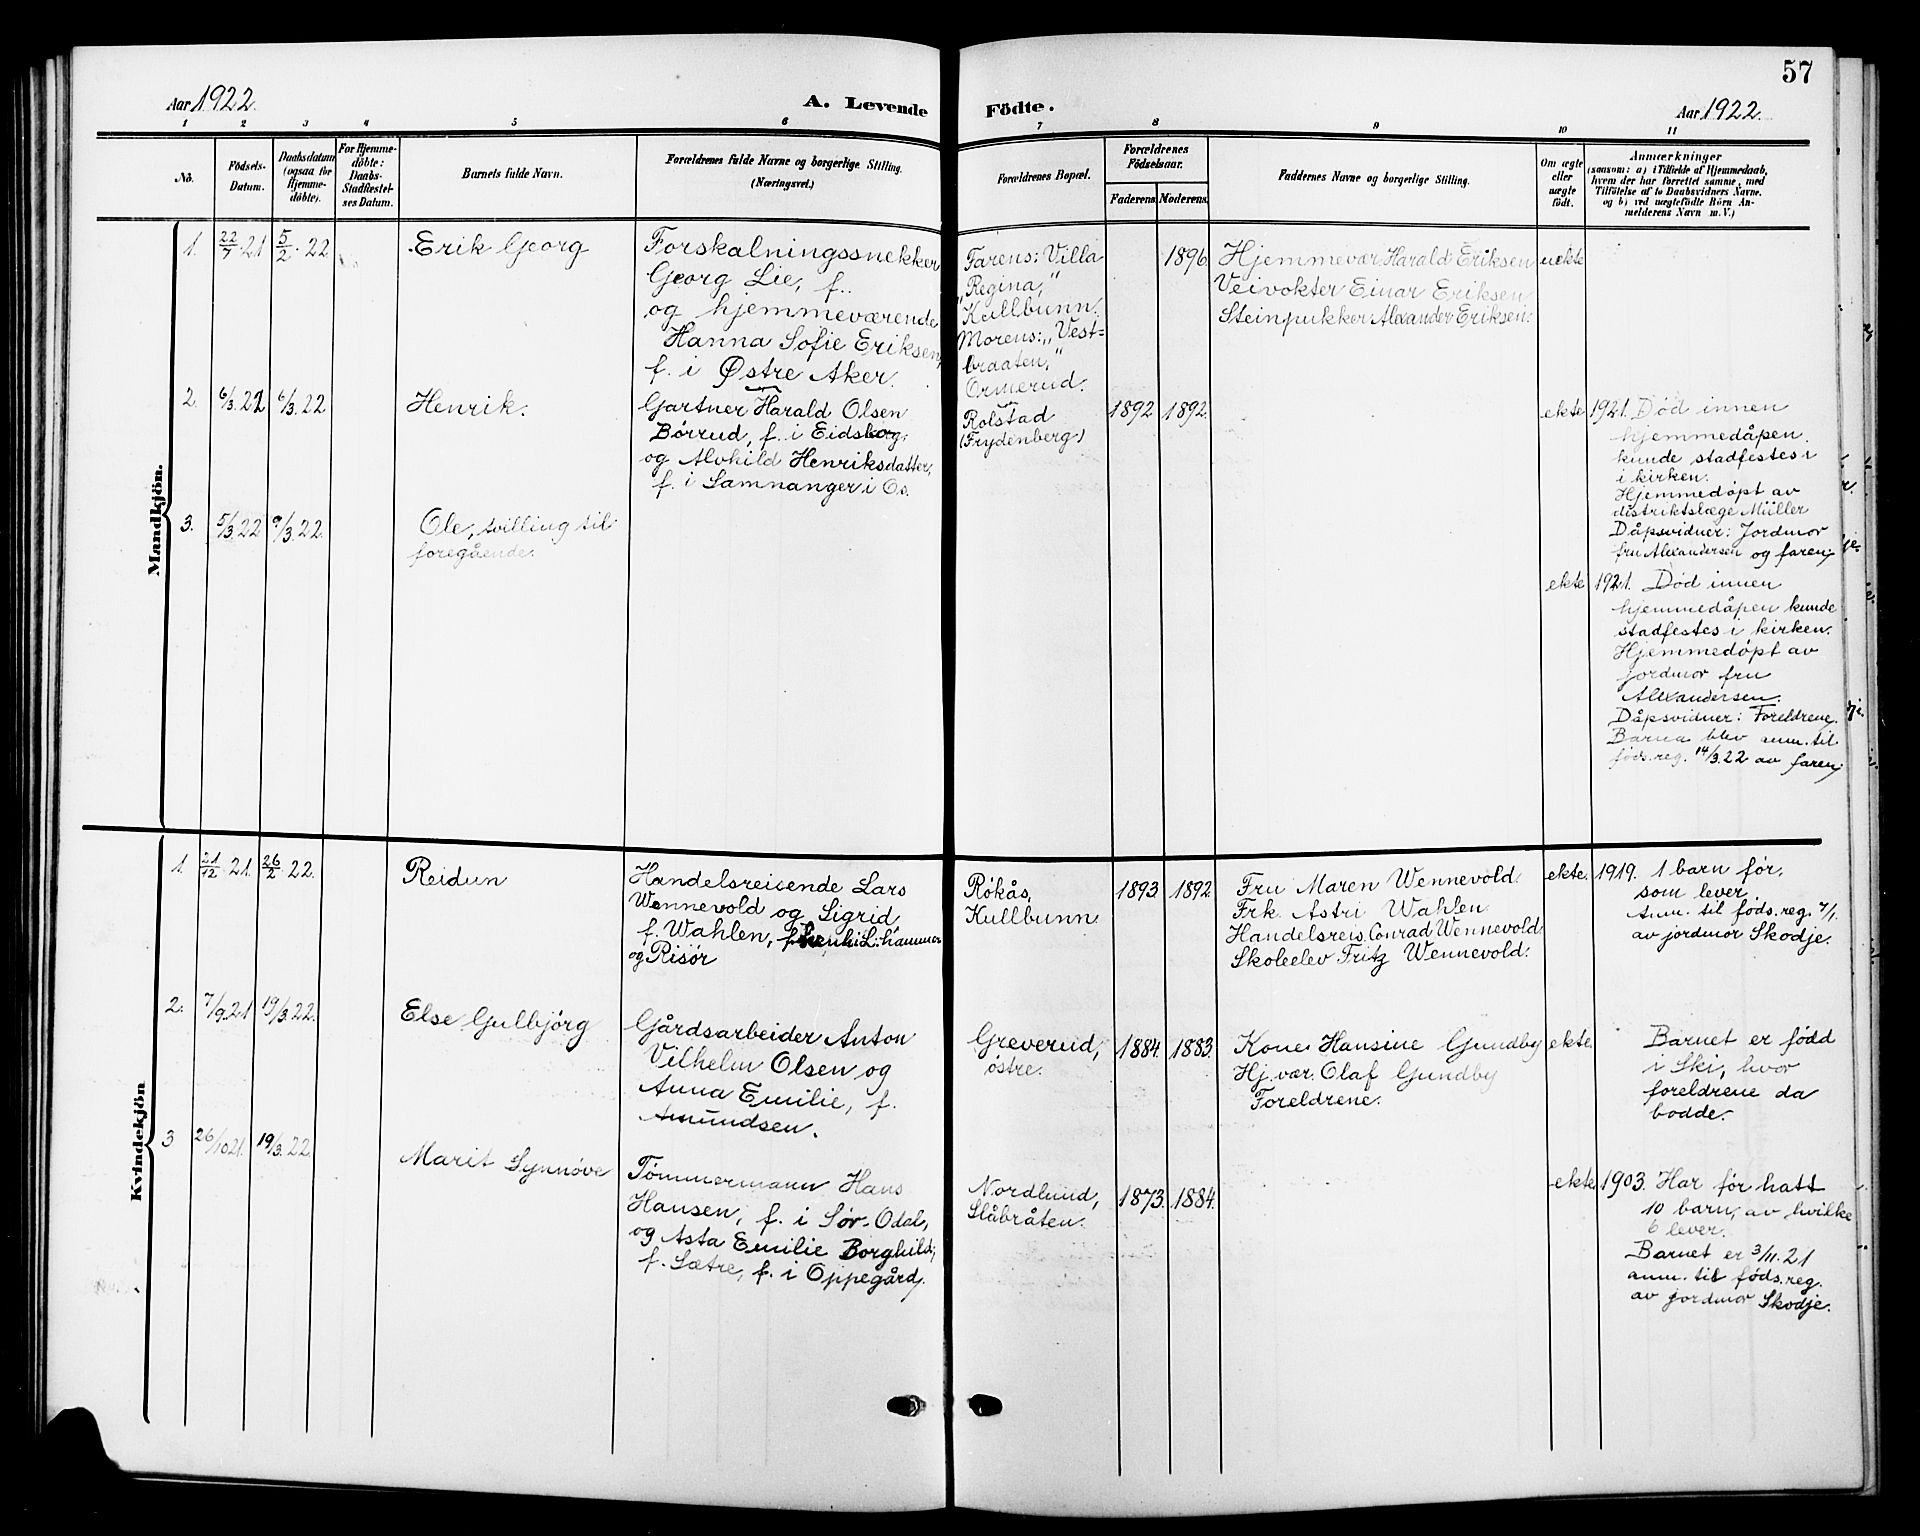 57
Aar 1922.
A. Levende
Födte.
Aar 1922.
1 2 3 4 5 6 7 8 9 10 11
No.
Födsels-
Datum.
Daabsdatum
(ogsaa for
Hjemme-
döbte).
For Hjemme-
döbte:
Daabs-
Stadfæstel-
ses Datum.
Barnets fulde Navn.
Forældrenes fulde Navne og borgerlige Stilling.
(Næringsvei.)
Forældrenes Bopæl.
Forældrenes
Födselsaar.
Faderens.
Moderens.
Faddernes Navne og borgerlige Stilling.
Om ægte
eller
uægte
födt.
Anmærkninger
(saasom: a) i Tilfælde af Hjemmedaab,
hvem der har forrettet samme, med
Tilföielse af to Daabsvidners Navne.
og b) ved uægtefödte Börn An-
melderens Navn m. V.)
Mandkjön.
1. 22/7.21 5/2.22
Erik Georg
Forskalningssnekker
Georg Lie, f..
og hjemmeværende
Hanna Sofie Eriksen,
f. i Østre Aker.
Farens: Villa
"Regina,"
Kullbunn.
Morens: "Vest-
braaten,"
Ormerud.
1896
Hjemmevær Harald Eriksen
Veivokter Einar Eriksen
Steinpukker Alexander Eriksen.
uekte
2. 6/3.22 6/3.22
Henrik.
Gartner Harald Olsen
Børrud, f. i Eidskog.
og Alvhild Henriksdatter,
f. i Samnanger i Os.
Rolstad
(Frydenberg)
1892 1892.
ekte
1921. Død innen
hjemmedåpen
kunde stadfestes i
i kirken.
Hjemmedøpt av
distriktslæge Müller
Dåpsvidner: Jordmor
fru Alexandersen og faren.
3. 5/3.22 9/3.22.
Ole, tvilling til
foregående.
ekte
1921. Død innen
hjemmedåpen kunde
stadfestes i kirken.
Hjemmedøpt av
jordmor fru
Alexandersen.
Dåpsvidner: Foreldrene.
Barna blev anm. til
føds.reg. 14/3.22 av faren.
Kvindekjön
1. 21/12.21. 26/2.22.
Reidun
Handelsreisende Lars
Wennevold og Sigrid
f. Wahlen, f. L.hammer
og Risør
Røkås,
Kullbunn
1893. 1892.
Fru Maren Wennevold.
Frk. Astri Wahlen.
Handelsreis. Conrad Wennevold.
Skoleelev Fritz Wennevold.
ekte.
1919. 1 barn før,
som lever
Anm. til føds.reg. 7/1.
av jordmor Skodje.
2. 7/9.21 19/3.22.
Else Gulbjørg
Gårdsarbeider Anton
Vilhelm Olsen og
Anna Emilie, f.
Amundsen.
Greverud,
østre.
1884. 1883.
Kone Hansine Gundby
Hj.vær. Olaf Gundby
Foreldrene.
ekte.
Barnet er født
i Ski, hvor
foreldrene da
bodde.
3 26/10 21. 19/3.22.
Marit Synnøve
Tømmermann Hans
Hansen, f. i Sør-Odal,
og Asta Emilie Borghild,
f. Sætre, f. i Oppegård.
Nordlund,
Slåbråten.
1873. 1884.
ekte
1903. Har før hatt
10 barn, av hvilke
6 lever.
Barnet er 3/11.21
anm. til føds.reg.
av jordmor Skodje.